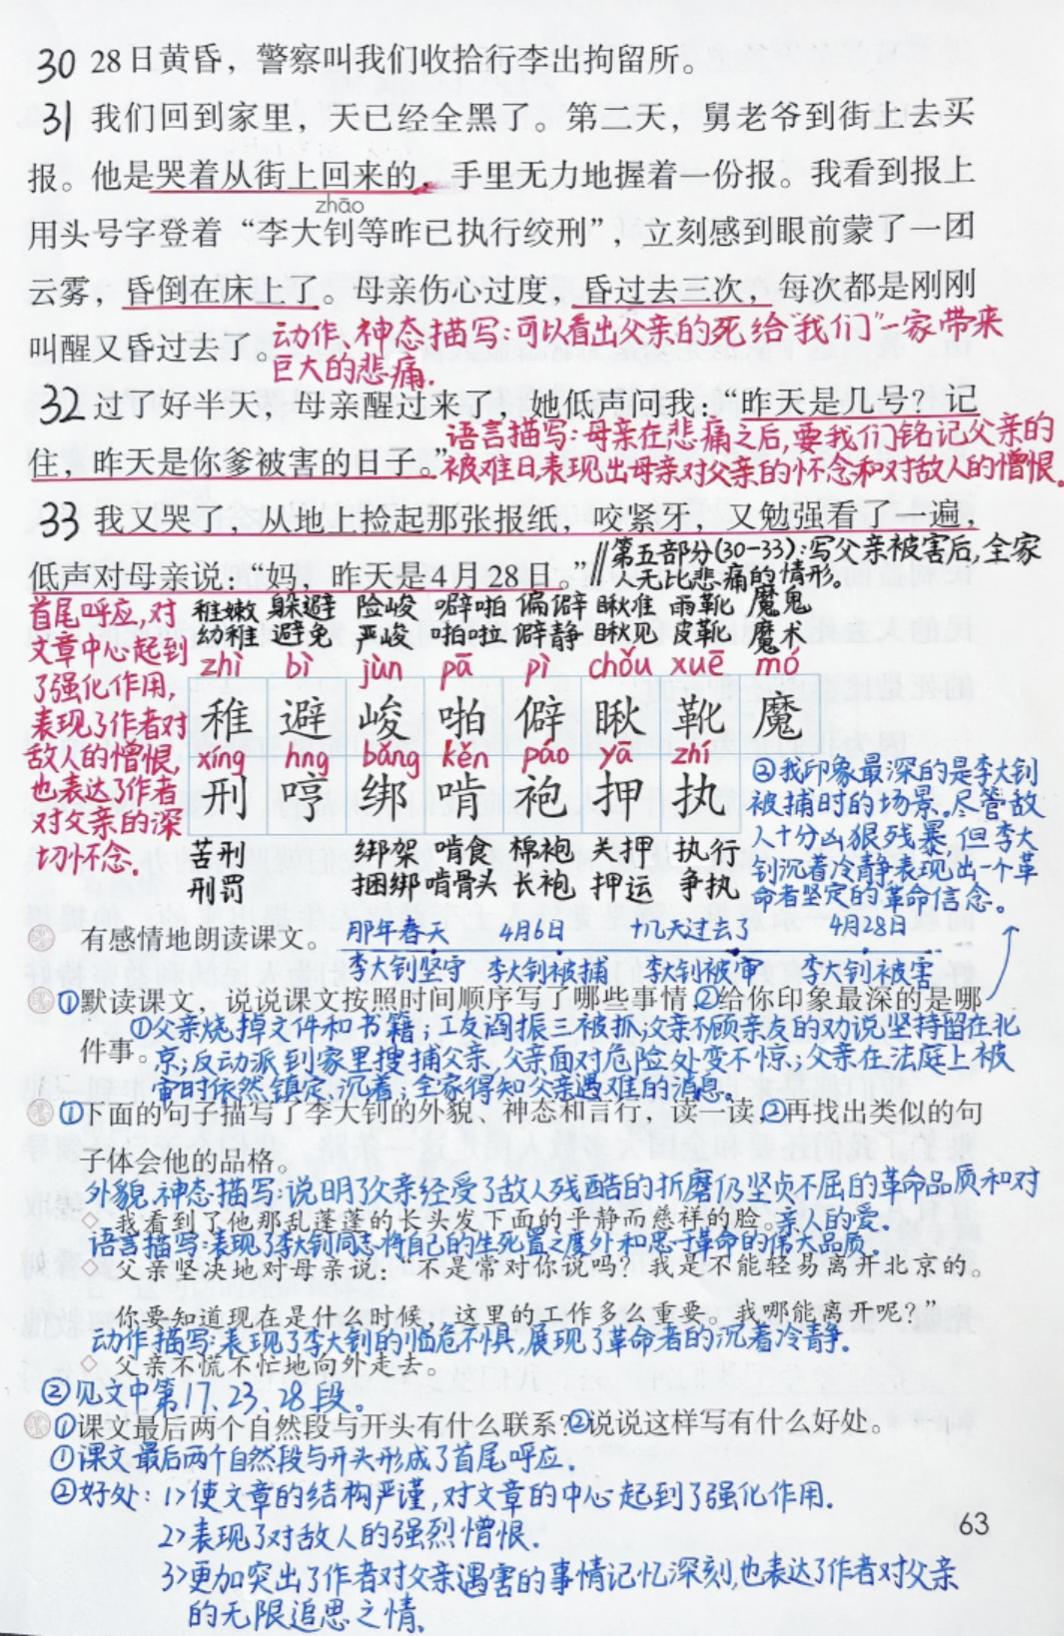 30 28日黄昏，警察叫我们收拾行李出拘留所。
31 我们回到家里，天已经全黑了。第二天，舅老爷到街上去买
报。他是哭着从街上回来的，手里无力地握着一份报。我看到报上
zhāo
用头号字登着“李大钊等昨已执行绞刑”，立刻感到眼前蒙了一团
云雾，昏倒在床上了。母亲伤心过度，昏过去三次，每次都是刚刚
叫醒又昏过去了。
动作、神态描写：可以看出父亲的死给“我们”一家带来
巨大的悲痛.
32 过了好半天，母亲醒过来了，她低声问我：“昨天是几号？记
住，昨天是你爹被害的日子。”
语言描写：母亲在悲痛之后,要我们铭记父亲的
被难日,表现出母亲对父亲的怀念和对敌人的憎恨。
33 我又哭了，从地上捡起那张报纸，咬紧牙，又勉强看了一遍，
低声对母亲说：“妈，昨天是4月28日。”
∥第五部分(30-33)：写父亲被害后,全家
人无比悲痛的情形。
首尾呼应,对
文章中心起到
了强化作用,
表现了作者对
敌人的憎恨,
也表达了作者
对父亲的深
切怀念.
稚嫩 躲避 险峻 噼啪 偏僻 瞅准 雨靴 魔鬼
幼稚 避免 严峻 啪啦 僻静 瞅见 皮靴 魔术
zhì bì jùn pā pì chǒu xuē mó
稚 避 峻 啪 僻 瞅 靴 魔
xíng hng bǎng kěn páo yā zhí
刑 哼 绑 啃 袍 押 执
苦刑 绑架 啃食 棉袍 关押 执行
刑罚 捆绑 啃骨头 长袍 押运 争执
②我印象最深的是李大钊
被捕时的场景。尽管敌
人十分凶狠残暴,但李大
钊沉着冷静表现出一个革
命者坚定的革命信念。
有感情地朗读课文。
那年春天 4月6日 十几天过去了 4月28日
李大钊坚守 李大钊被捕 李大钊被审 李大钊被害
①默读课文，说说课文按照时间顺序写了哪些事情，②给你印象最深的是哪
件事。
①父亲烧掉文件和书籍；工友阎振三被抓;父亲不顾亲友的劝说坚持留在北
京;反动派到家里搜捕父亲,父亲面对危险处变不惊;父亲在法庭上被
审时依然镇定、沉着;全家得知父亲遇难的消息。
①下面的句子描写了李大钊的外貌、神态和言行，读一读，②再找出类似的句
子体会他的品格。
外貌、神态描写:说明了父亲经受了敌人残酷的折磨仍坚贞不屈的革命品质和对
亲人的爱.
◇ 我看到了他那乱蓬蓬的长头发下面的平静而慈祥的脸。
语言描写:表现了李大钊同志将自己的生死置之度外和忠于革命的伟大品质。
◇ 父亲坚决地对母亲说：“不是常对你说吗？我是不能轻易离开北京的。
你要知道现在是什么时候，这里的工作多么重要。我哪能离开呢？”
动作描写:表现了李大钊的临危不惧,展现了革命者的沉着冷静.
◇ 父亲不慌不忙地向外走去。
②见文中第17、23、28段。
①课文最后两个自然段与开头有什么联系？②说说这样写有什么好处。
①课文最后两个自然段与开头形成了首尾呼应.
②好处：1>使文章的结构严谨,对文章的中心起到了强化作用.
2>表现了对敌人的强烈憎恨.
3>更加突出了作者对父亲遇害的事情记忆深刻,也表达了作者对父亲
的无限追思之情.
63